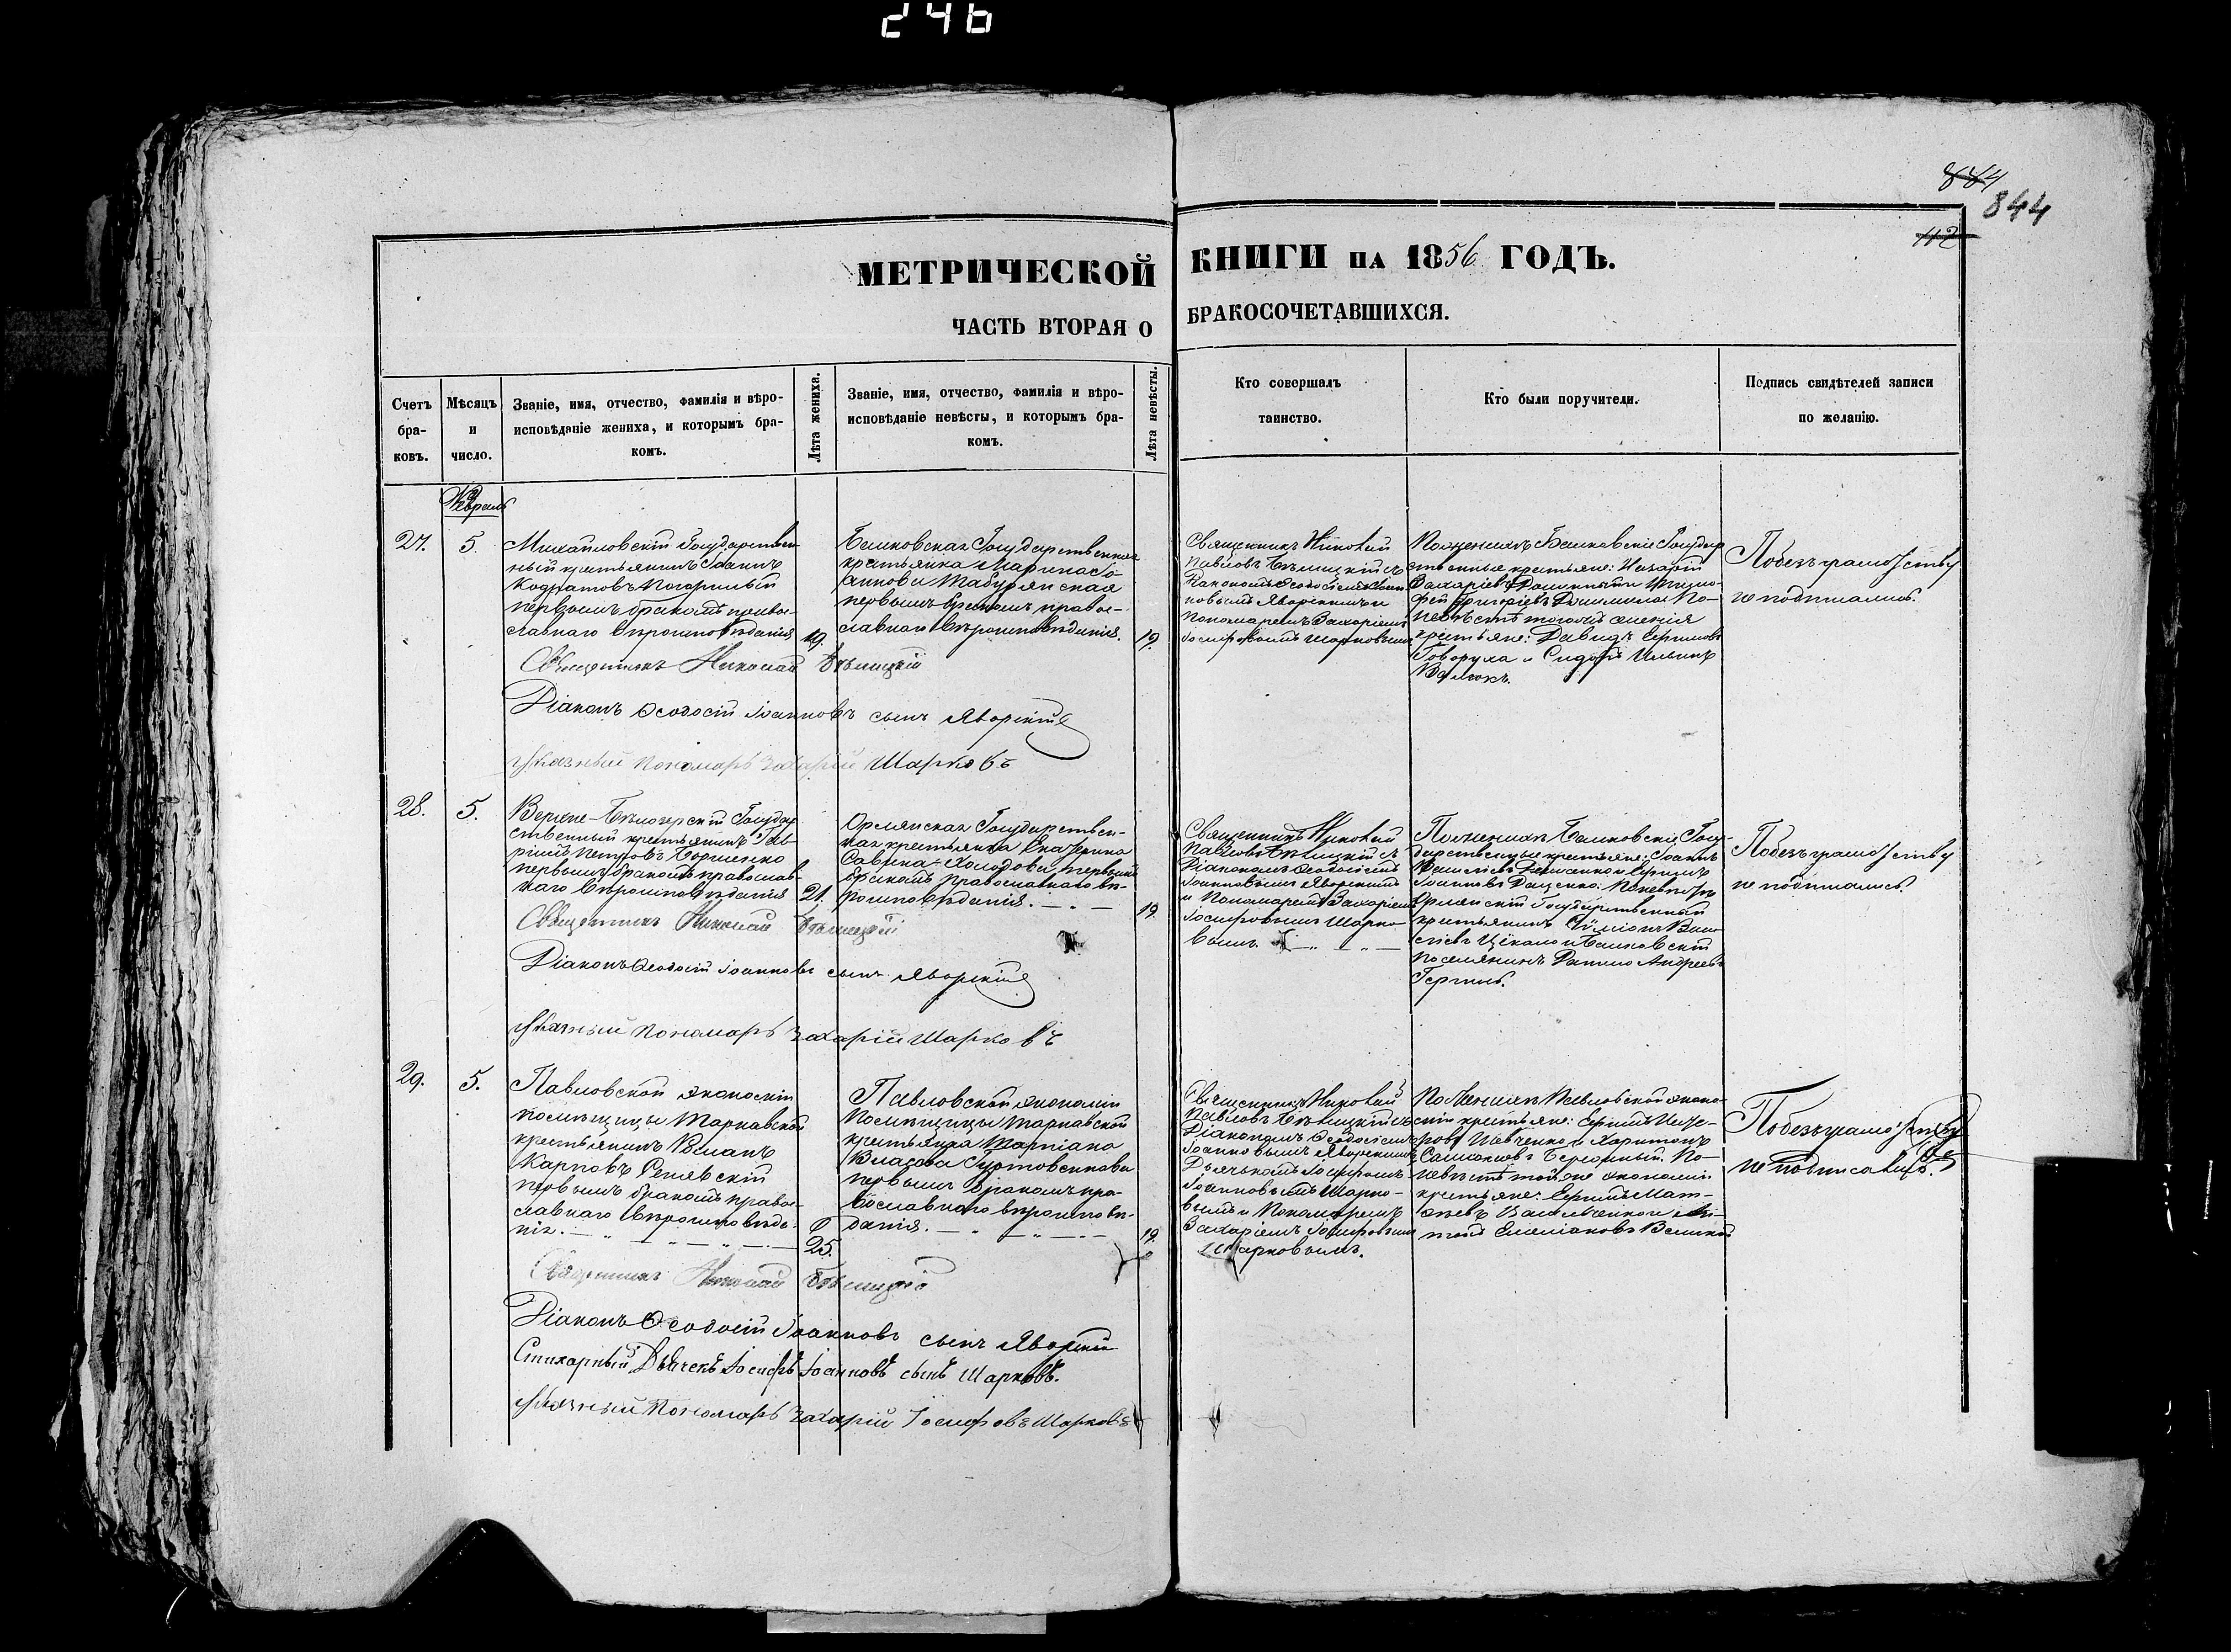 246
884
844
112
МЕТРИЧЕСКОЙ КНИГИ НА 1856 ГОДЪ.
ЧАСТЬ ВТОРАЯ О БРАКОСОЧЕТАВШИХСЯ.
Счетъ бра-
ковъ.
Мѣсяцъ
и
число.
Званіе, имя, отчество, фамилія и вѣро-
исповѣданіе жениха, и которымъ бра-
комъ.
Лѣта жениха.
Званіе, имя, отчество, фамилія и вѣро-
исповѣданіе невѣсты, и которымъ бра-
комъ.
Лѣта невѣсты.
Кто совершалъ
таинство.
Кто были поручители.
Подпись свидѣтелей записи
по желанію.
Февраль
27.
5.
Михайловскій Государствен
ный крестьянинъ Іоаннъ
Кодратовъ
первымъ бракомъ право-
славнаго вѣроисповѣданія
19.
Балковская Государственная
крестьянка Марина Іо-
аннова Табурянская
первымъ бракомъ право-
славнаго вѣроисповѣданія.
19.
Священникъ Николай
Павловъ Бѣлицкій съ
Діакономъ Ѳеодосіемъ Іоан
новымъ Яворскимъ и
Пономаремъ Захаріемъ
Іосифовымъ Шарковымъ
По женихѣ Балковскіе Государ
ственные крестьяне: Назарій
Захаріевъ
Григорьевъ По
невѣстѣ того жъ имѣнія
крестьяне: Давидъ
Говоруха и Сидоръ Ильинъ
По безграмотству
не подписались.
Священникъ Николай Бѣлицкій
Діаконъ Ѳеодосій Іоанновъ сынъ Яворскій
Указный Пономарь Захарій Шарковъ
28.
5.
Верхне-Бѣлозерскій Государ
ственный крестьянинъ Гав-
ріилъ Петровъ Борщенко
первымъ бракомъ православ-
наго вѣроисповѣданія
21.
Орлянская Государствен-
ная крестьянка Екатерина
Савина Холодова первымъ
бракомъ православнаго вѣ-
роисповѣданія.
19.
Священникъ Николай
Павловъ Бѣлицкій съ
Діакономъ Ѳеодосіемъ
Іоанновымъ Яворскимъ
и Пономаремъ Захаріемъ
Іосифовымъ Шарко-
вымъ
По женихѣ Балковскіе Госу-
дарственные крестьяне: Іоаннъ
Іоанновъ Даценко. По невѣстѣ
Орлянскій Государственный
крестьянинъ Симіонъ Васи-
ліевъ и Балковскій
поселянинъ Данило Андреевъ
По безграмотству
не подписались.
Священникъ Николай Бѣлицкій
Діаконъ Ѳеодосій Іоанновъ сынъ Яворскій
Указный Пономарь Захарій Шарковъ
29.
5.
Павловской экономіи
помѣщицы Марнавской
крестьянинъ Романъ
Карповъ
первымъ бракомъ право-
славнаго вѣроисповѣда-
нія.
25.
Павловской экономіи
Помѣщицы Марнавской
крестьянка
Власова
первымъ бракомъ пра-
вославнаго вѣроисповѣ-
данія.
19.
Священникъ Николай
Павловъ Бѣлицкій съ
Діакономъ Ѳеодосіемъ
Іоанновымъ Яворскимъ
Дьячкомъ Іосифомъ
Іоанновымъ Шарко-
вымъ и Пономаремъ
Захаріемъ Іосифовымъ
Шарковымъ.
По женихѣ Павловской эконо-
міи крестьяне:
Шевченко и Харитонъ
По
невѣстѣ той же экономіи
крестьяне: Ефимъ Мат-
ѳеевъ Васильченко и
Емеліановъ
По безграмотству
не подписались.
Священникъ Николай Бѣлицкій
Діаконъ Ѳеодосій Іоанновъ сынъ Яворскій
Стихарный Дьячекъ Іосифъ Іоанновъ сынъ Шарковъ.
Указный Пономарь Захарій Іосифовъ Шарковъ